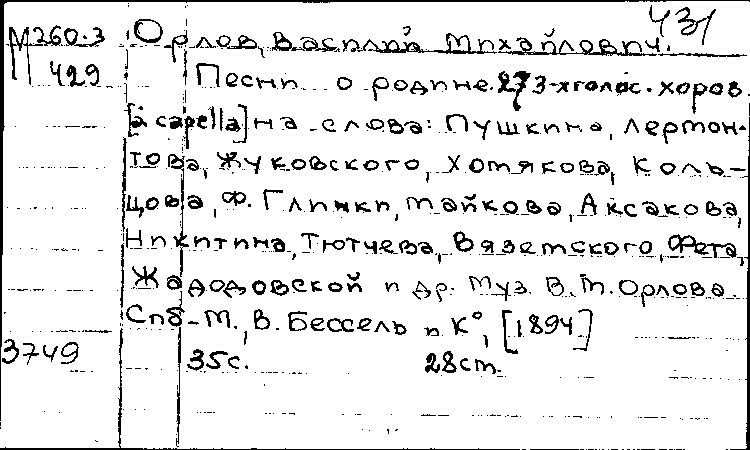 431
М260.3 Орлов, Василий Михайлович.
М 429 Песни о родине. 27 3-хголос. хоров
[a capella] на слова: Пушкина, Лермон-
това, Жуковского, Хомякова, Коль-
цова, Ф. Глинки, Майкова, Аксакова,
Никитина, Тютчева, Вяземского, Фета,
Жадодовской и др. Муз. В.М. Орлова
Спб-М., В. Бессель и К°, [1894]
3749 35с. 28см.